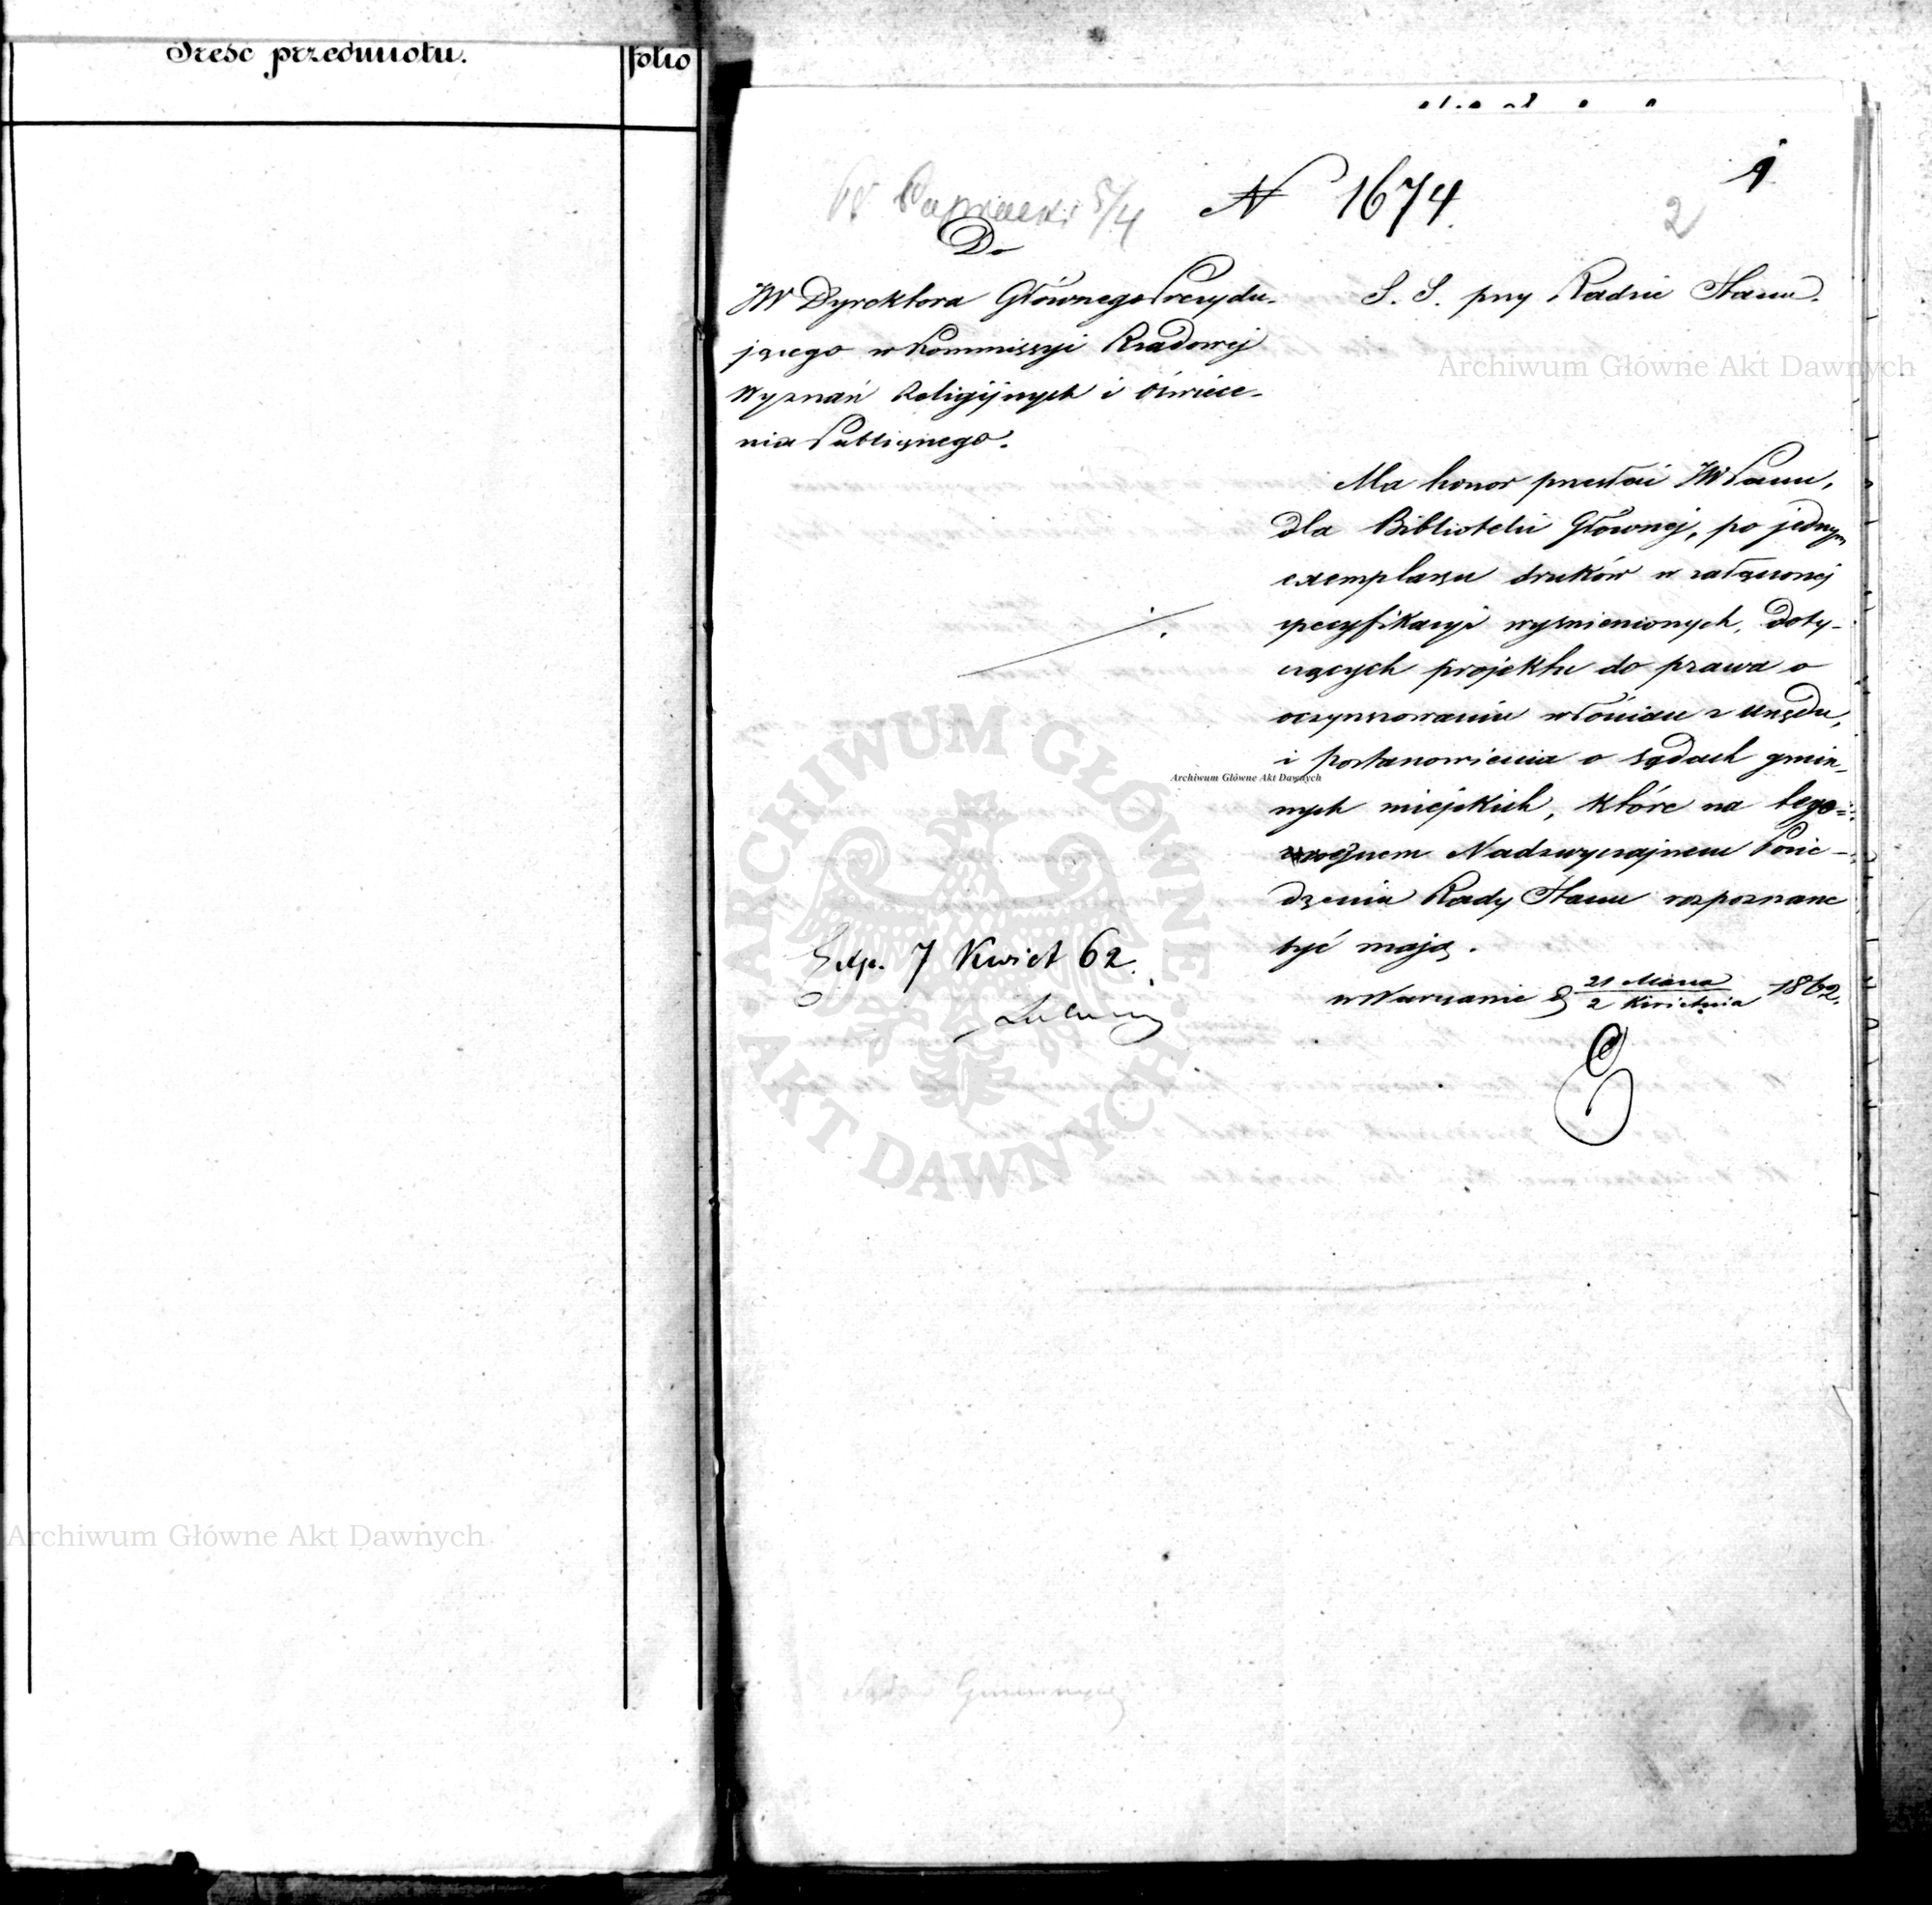 Treść przedmiotu.
folio
N 1674.
1
2
5/4
Do
JW Dyrektora Głównego Prezydu-
jącego w Kommissyi Rządowej
Wyznań Religijnych i Oświece-
nia Publicznego.
S. S. przy Radzie Stanu.
Ma honor przesłać JW Panu,
dla Biblioteki Głównej, po jednym
exemplarzu druków w załączonej
specyfikacyi wymienionych, doty-
czących projektu do prawa o
oczynszowaniu włościan z urzędu,
i postanowienia o sądach gmin-
nych miejskich, które na tego-
Nadzwyczajnem Posie-
dzeniu Rady Stanu rozpoznane
być mają.
w Warszawie d 21 Marca / 2 Kwietnia 1862.
Exp. 7 Kwiet 62.
Archiwum Główne Akt Dawnych
Archiwum Główne Akt Dawnych
ARCHIWUM GŁÓWNE
AKT DAWNYCH
Archiwum Główne Akt Dawnych